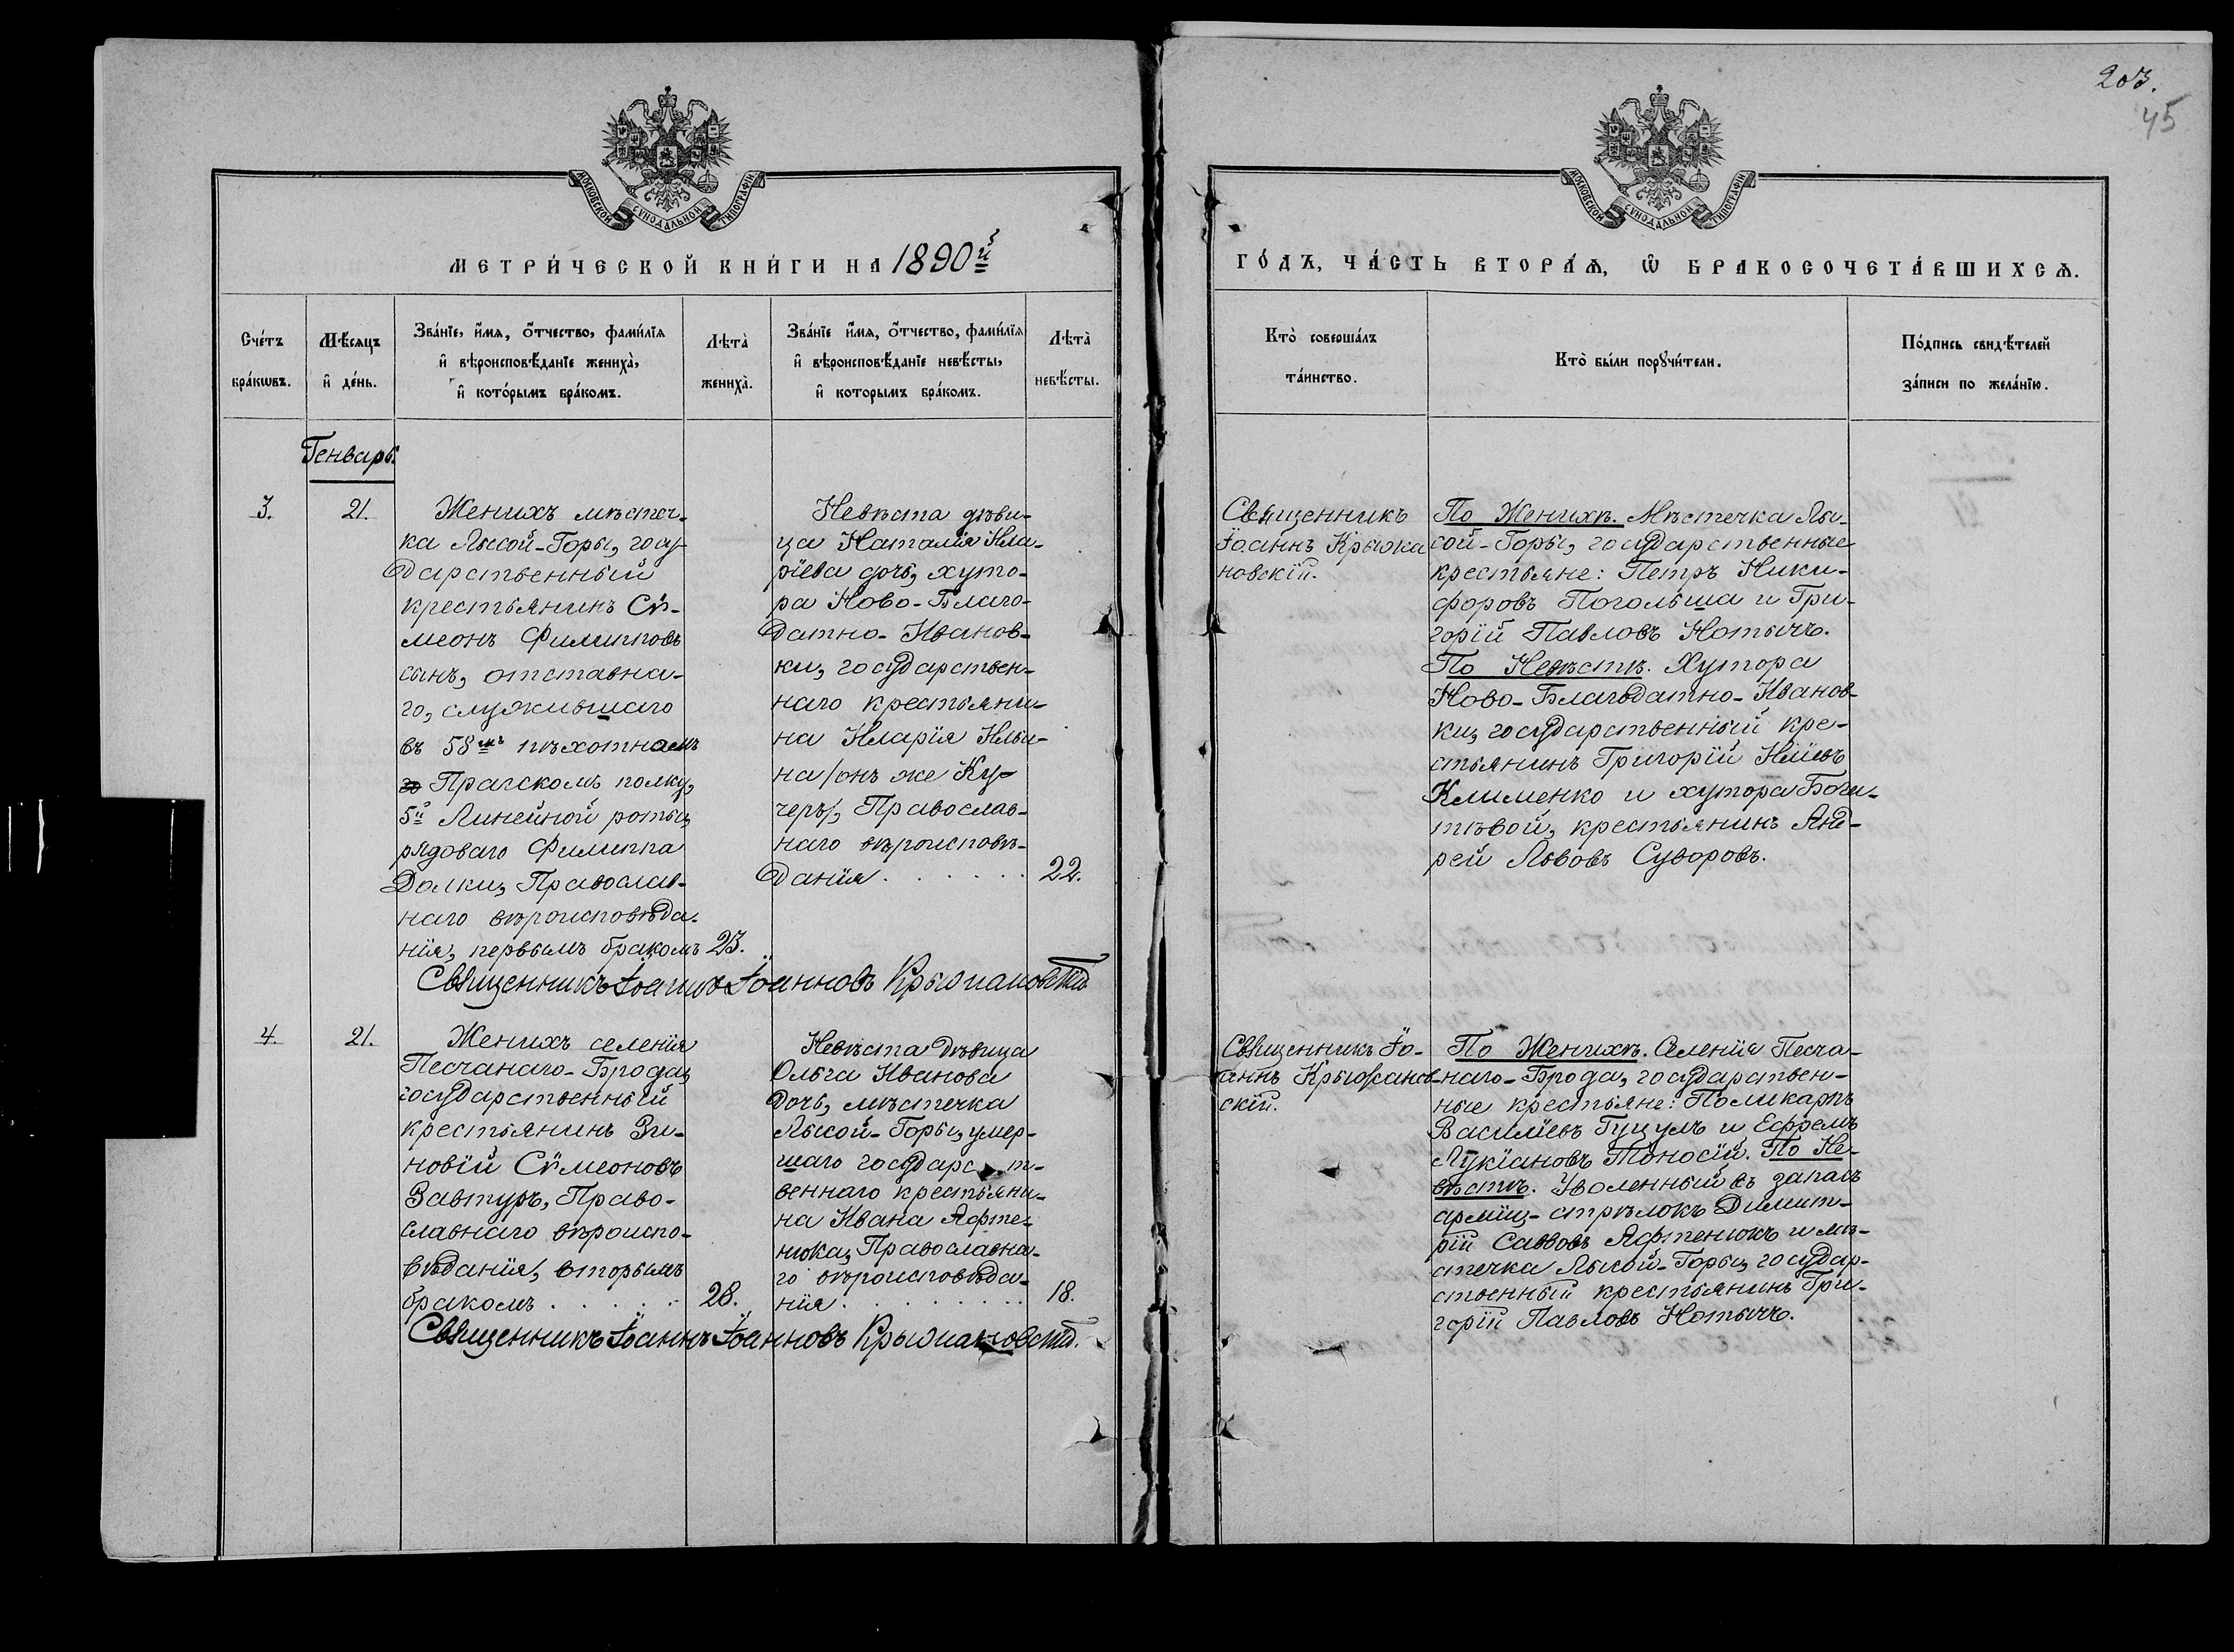 203.
45
МОСКОВСКОЙ СѴНОДАЛЬНОЙ ТИПОГРАФІИ
МОСКОВСКОЙ СѴНОДАЛЬНОЙ ТИПОГРАФІИ
МЕТРИ́ЧЕСКОЙ КНИ́ГИ НА 1890й
ГО́ДЪ, ЧА́СТЬ ВТОРА́Ѧ, Ѽ БРАКОСОЧЕТА́ВШИХСѦ.
Сче́тъ
бра́кѡвъ.
Мѣ́сяцъ
и҆ де́нь.
Зва́нїе, и҆́мя, ѻ҆́тчество, фами́лїя
и҆ вѣроисповѣ́данїе жениха̀,
и҆ кото́рымъ бра́комъ.
Лѣта̀
жениха̀.
Зва́нїе и҆́мя, ѻ҆́тчество, фами́лїя
и҆ вѣроисповѣ́данїе невѣ́сты,
и҆ которымъ бра́комъ.
Лѣта̀
невѣ́сты.
Кто̀ соверша́лъ
та́инство.
Кто̀ бы́ли порꙋчи́тели.
По́дпись свидѣ́телей
за́писи по жела́нїю.
Генварь.
3.
21.
Женихъ мѣстеч-
ка Лысой-Горы, госу-
дарственный
крестьянинъ Сѵ-
меонъ Филипповъ
сынъ, отставна-
го, служившаго
въ 58мъ пѣхотномъ
Прагскомъ полку,
5й Линейной роты,
рядоваго Филиппа
Долки, Православ-
наго вѣроисповѣда-
нія, первымъ бракомъ
23.
Невѣста дѣви-
ца Наталія Ила-
ріева дочь, хуто-
ра Ново-Благо-
датно-Иванов-
ки, государствен-
наго крестьяни-
на Иларія Ильи-
на /онъ же Ку-
черъ/, Православ-
наго вѣроисповѣ-
данія . . . . . .
22.
Священникъ
Іоаннъ Крыжа
новскій.
По Женихѣ. Мѣстечка Лы-
сой-Горы, государственные
крестьяне: Петръ Ники-
форовъ Погольша и Гри-
горій Павловъ Нотычъ.
По Невѣстѣ. Хутора
Ново-Благодатно-Иванов-
ки, государственный кре-
стьянинъ Григорій Иліевъ
Клименко и хутора
крестьянинъ Анд-
рей Львовъ Суворовъ.
Священникъ Іоаннъ Іоанновъ Крыжановскій
4.
21.
Женихъ селенія
Песчанаго-Брода,
государственный
крестьянинъ Зи-
новій Сѵмеоновъ
Завтуръ, Право-
славнаго вѣроиспо-
вѣданія, вторымъ
бракомъ . . . . .
28.
Невѣста дѣвица
Ольга Иванова
дочь, мѣстечка
Лысой-Горы, умер-
шаго государст-
веннаго крестьяни-
на Ивана Афте-
нюка, Православна-
го вѣроисповѣда-
нія . . . . . . . .
18.
Священникъ Іо-
аннъ Крыжанов-
скій.
По Женихѣ. Селенія Песча-
наго-Брода, государствен-
ные крестьяне: Поликарпъ
Василіевъ Гуцулъ и Ефремъ
Лукіановъ Тоносій. По Не-
вѣстѣ. Уволенный въ запасъ
арміи, стрѣлокъ Димит-
рій Саввовъ Афтенюкъ и мѣ-
стечка Лысой-Горы, государ-
ственный крестьянинъ Гри-
горій Павловъ Нотычъ.
Священникъ Іоаннъ Іоанновъ Крыжановскій.